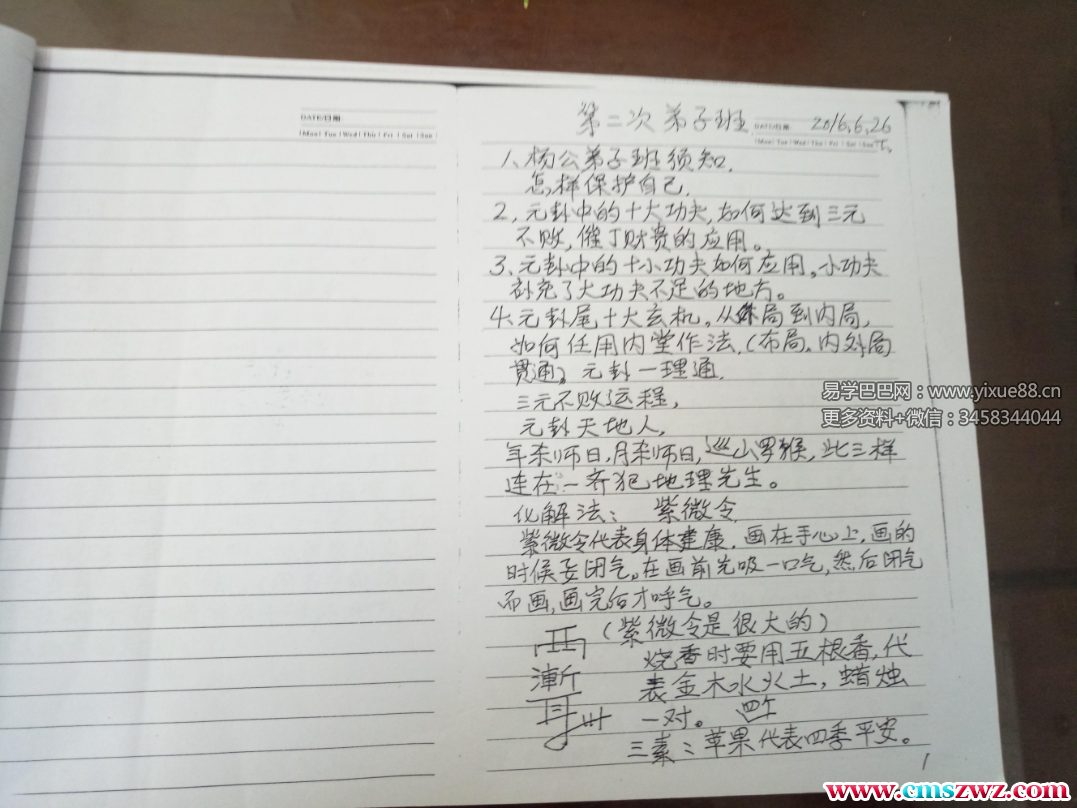 DATE/日期
Mon Tue Wed Thu Fri Sat Sun
第二次弟子班 DATE/日期 2016.6.26
Mon Tue Wed Thu Fri Sat Sun
1、杨公弟子班须知.
怎样保护自己.
2、元卦中的十大功夫,如何达到三元
不败,催丁财贵的应用。
3、元卦中的十小功夫如何应用。小功夫
补充了大功夫不足的地方。
4、元卦尾十大玄机。从外局到内局,
如何任用内堂作法,(布局、内外局
贯通)。元卦一理通,
三元不败运程,
元卦天地人,
年杀师日,月杀师日,巡山罗猴,此三样
连在一齐犯地理先生。
化解法: 紫微令
紫微令代表身体建康.画在手心上,画的
时候要闭气。在画前先吸一口气,然后闭气
而画,画完后才呼气。
(紫微令是很大的)
烧香时要用五根香,代
表金木水火土,蜡烛
一对。 四个
三素:苹果代表四季平安。
1
易学巴巴网:www.yixue88.cn
更多资料+微信:3458344044
www.cmszwz.com